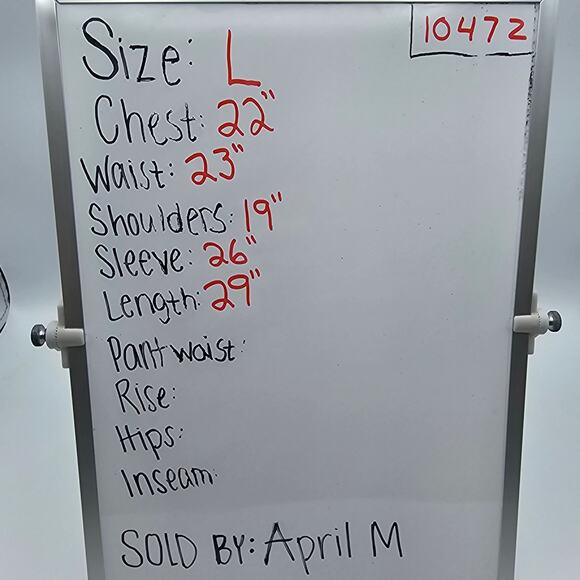 10472
Size: L
Chest: 22"
Waist: 23"
Shoulders: 19"
Sleeve: 26"
Length: 29"
Pant waist:
Rise:
Hips:
Inseam:
SOLD BY: April M